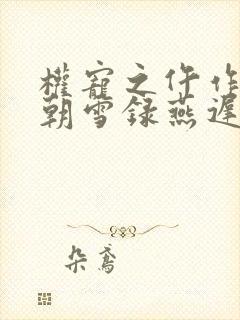 權寵之仵作
朝雪録燕遲
朵鳶